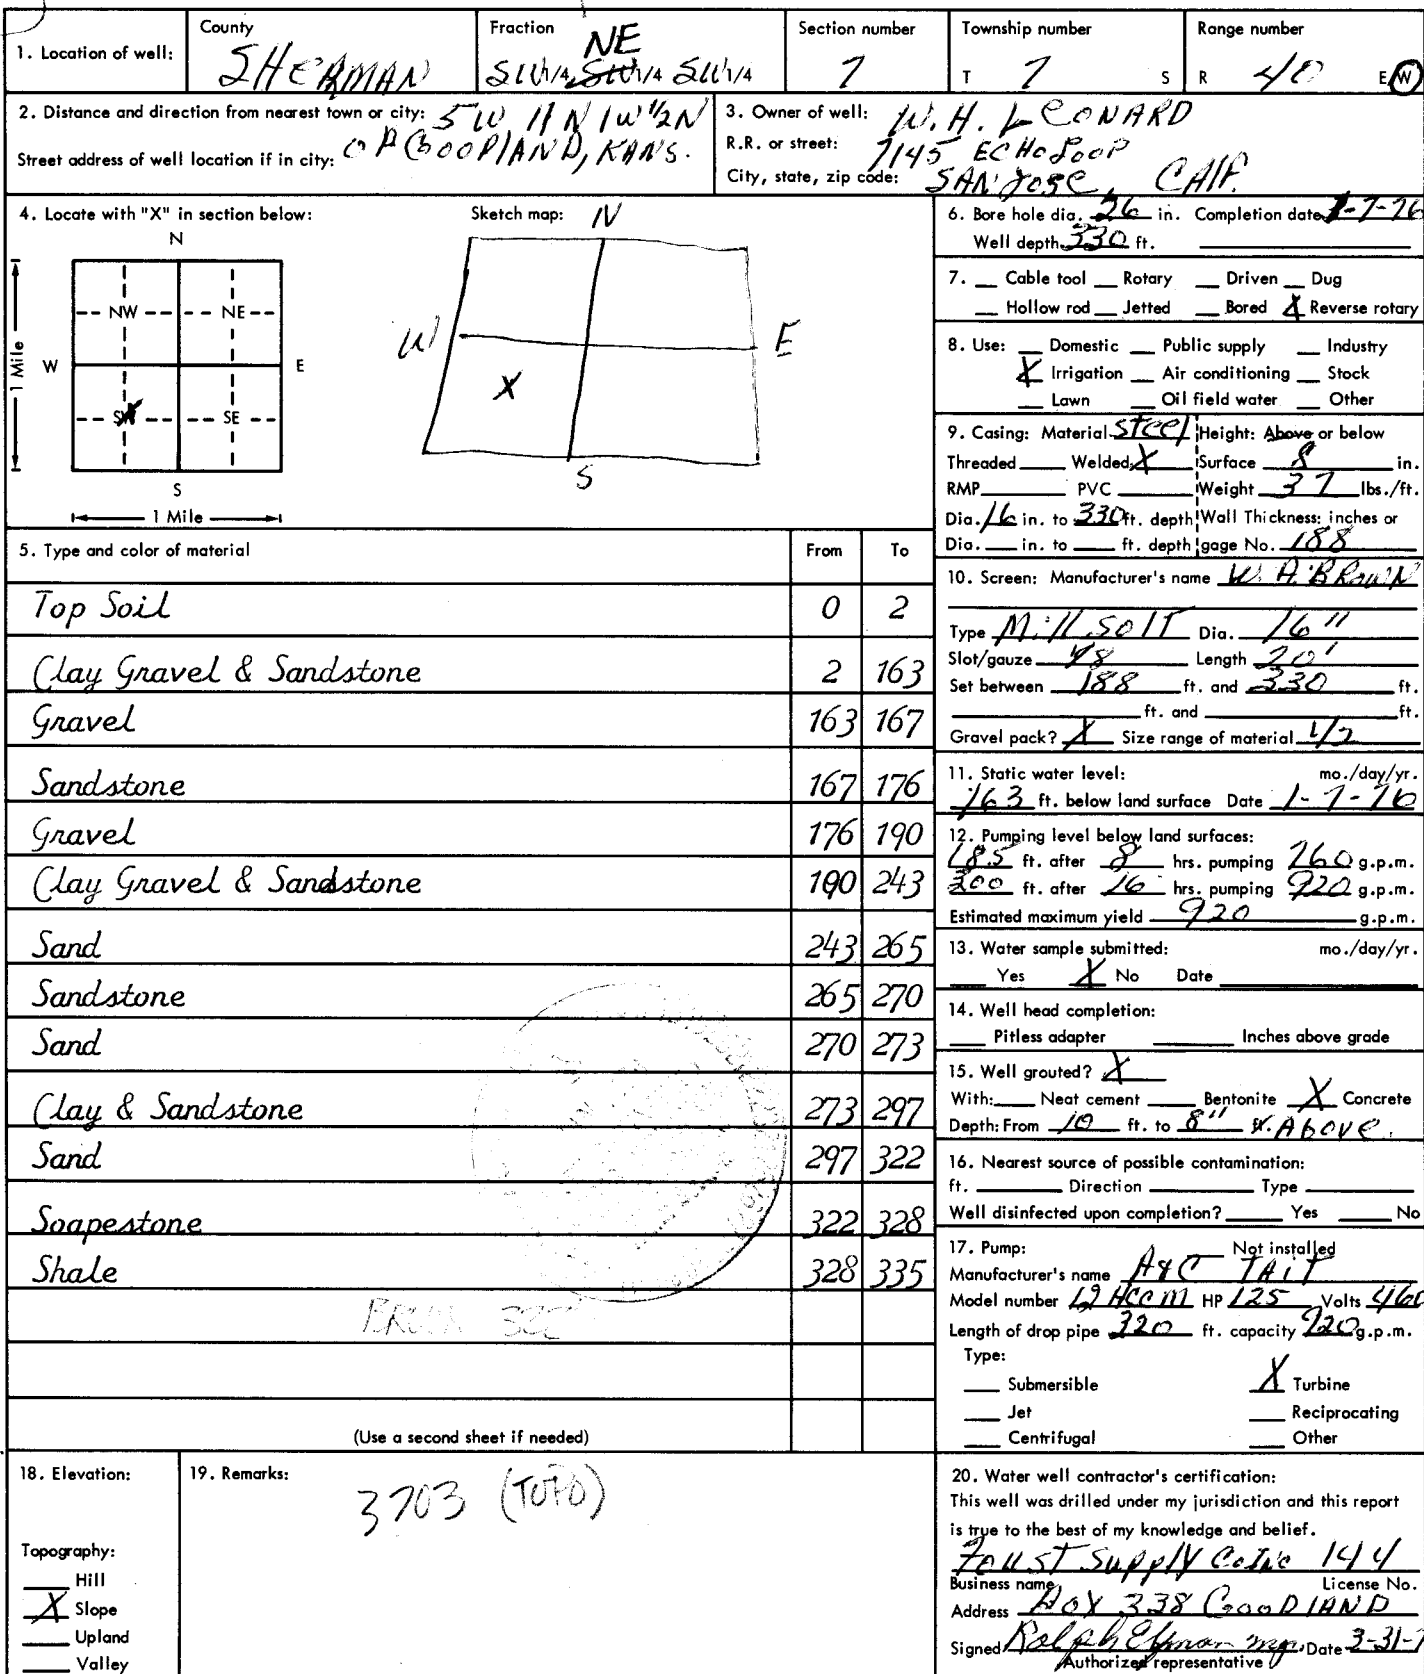 County Fraction NE Section number Township number Range number
1. Location of well: SHERMAN SW1/4 SW1/4 SW1/4 7 T 7 S R 40 E W
2. Distance and direction from nearest town or city: 5W 11N 1W 1/2N
OF GOODLAND, KANS.
Street address of well location if in city:
3. Owner of well: W. H. LEONARD
R.R. or street: 7145 ECHO LOOP
City, state, zip code: SAN JOSE, CALIF.
4. Locate with "X" in section below: Sketch map: N
N
NW NE
W E
SW X SE
S
1 Mile
1 Mile
W E
X
S
5. Type and color of material From To
Top Soil 0 2
Clay Gravel & Sandstone 2 163
Gravel 163 167
Sandstone 167 176
Gravel 176 190
Clay Gravel & Sandstone 190 243
Sand 243 265
Sandstone 265 270
Sand 270 273
Clay & Sandstone 273 297
Sand 297 322
Soapestone 322 328
Shale 328 335
(Use a second sheet if needed)
6. Bore hole dia. 26 in. Completion date 1-7-76
Well depth 330 ft.
7. Cable tool Rotary Driven Dug
Hollow rod Jetted Bored X Reverse rotary
8. Use: Domestic Public supply Industry
X Irrigation Air conditioning Stock
Lawn Oil field water Other
9. Casing: Material Steel Height: Above or below
Threaded Welded X Surface 8 in.
RMP PVC Weight 37 lbs./ft.
Dia. 16 in. to 330 ft. depth Wall Thickness: inches or
Dia. in. to ft. depth gage No. 188
10. Screen: Manufacturer's name W. A. BROWN
Type Mill SolT Dia. 16"
Slot/gauze Length 20'
Set between 188 ft. and 330 ft.
ft. and ft.
Gravel pack? X Size range of material 1/2
11. Static water level: mo./day/yr.
163 ft. below land surface Date 1-7-76
12. Pumping level below land surfaces:
185 ft. after 8 hrs. pumping 760 g.p.m.
200 ft. after 16 hrs. pumping 920 g.p.m.
Estimated maximum yield 920 g.p.m.
13. Water sample submitted: mo./day/yr.
Yes X No Date
14. Well head completion:
Pitless adapter Inches above grade
15. Well grouted? X
With: Neat cement Bentonite X Concrete
Depth: From 10 ft. to 8" ft. Above.
16. Nearest source of possible contamination:
ft. Direction Type
Well disinfected upon completion? Yes No
17. Pump: Not installed
Manufacturer's name A&C TAIT
Model number 12 HCCM HP 125 Volts 460
Length of drop pipe 320 ft. capacity 920 g.p.m.
Type:
Submersible X Turbine
Jet Reciprocating
Centrifugal Other
18. Elevation: 19. Remarks:
3703 (TOPO)
Topography:
Hill
X Slope
Upland
Valley
20. Water well contractor's certification:
This well was drilled under my jurisdiction and this report
is true to the best of my knowledge and belief.
Foust Supply Co Inc 144
Business name License No.
Address Box 338 GOODLAND
Signed Ralph mgr. Date 3-31-7
Authorized representative